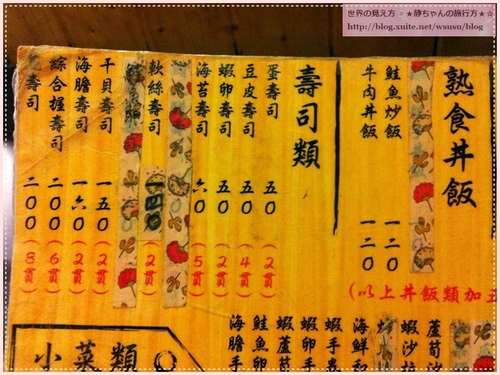 世界の見え方 ☆★靜ちゃんの旅行方★☆
http://blog.xuite.net/wsusu/blog
熟食丼飯
鮭魚炒飯 一二0
牛肉丼飯 一二0
(以上丼飯類加五
壽司類
蛋壽司 五0 (2貫)
豆皮壽司 五0 (4貫)
蝦卵壽司 五0 (2貫)
海苔壽司 六0 (5貫)
軟絲壽司 (2貫)
干貝壽司 一五0 (2貫)
海膽壽司 一六0 (2貫)
綜合握壽司 二00 (6貫)
壽司 二00 (8貫)
蘆筍沙
蝦沙拉
海鮮和
蝦手卷
蝦卵手
蝦蘆筍
鮭魚卵
海膽手
小菜類